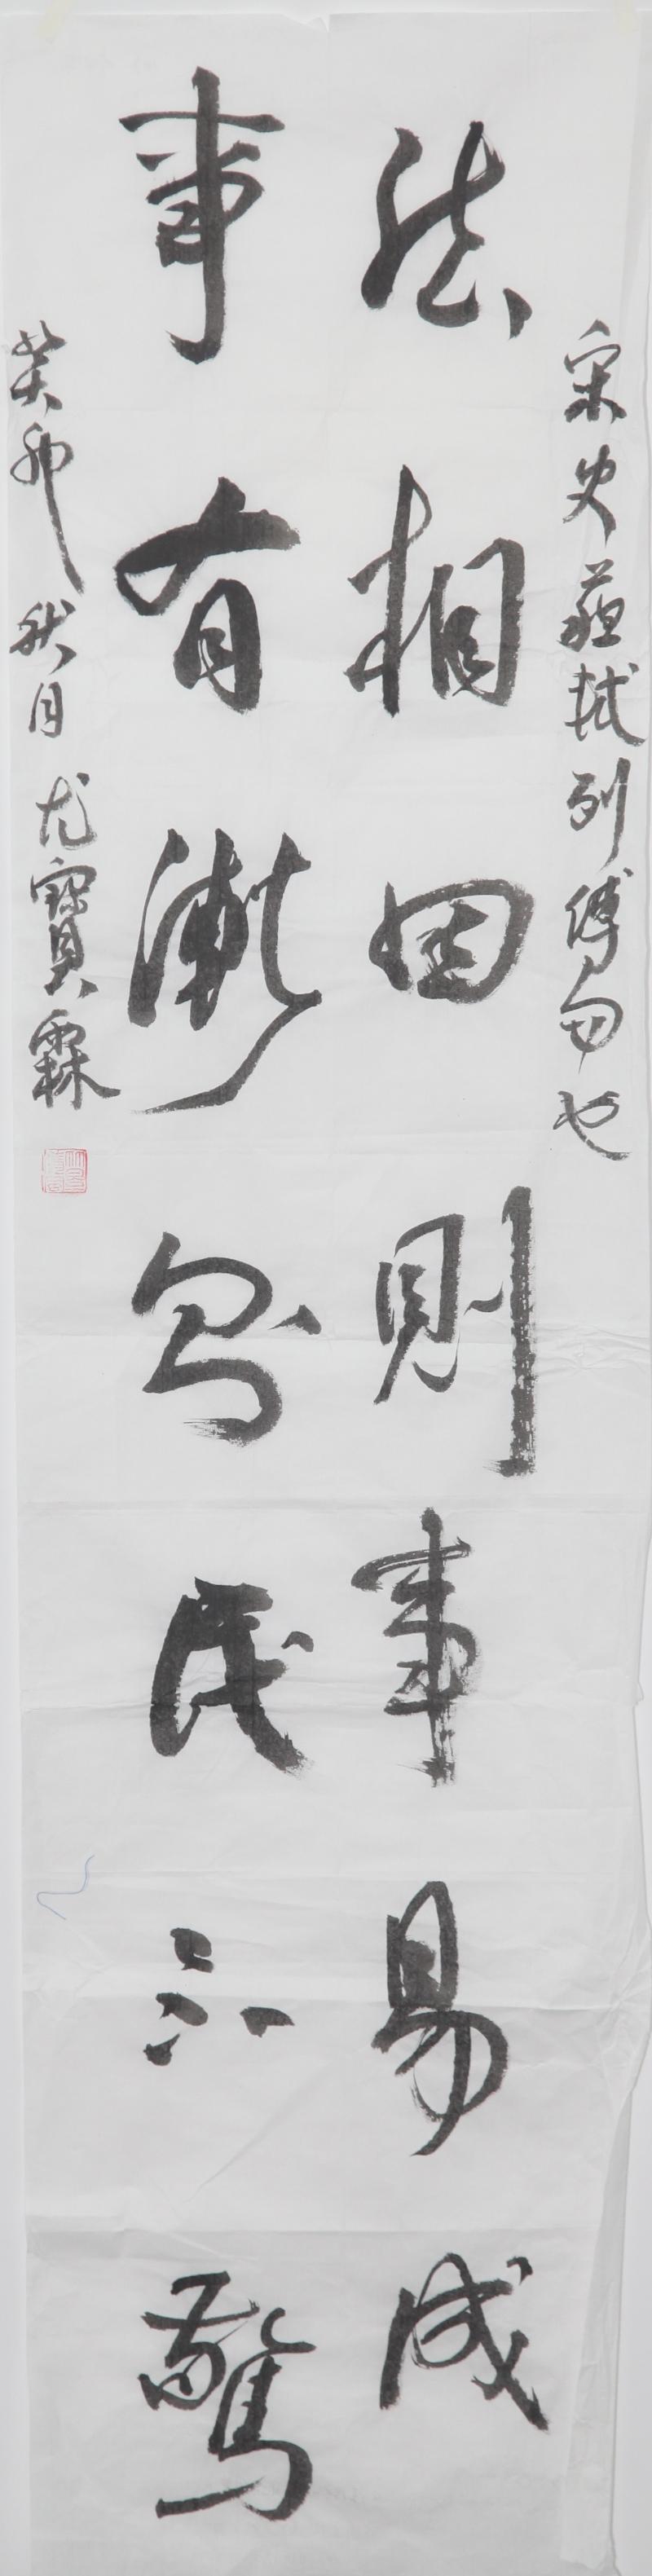 宋史苏轼列傅句也
法相因則事易成
事有漸則民不驚
癸卯秋月尤寶霖